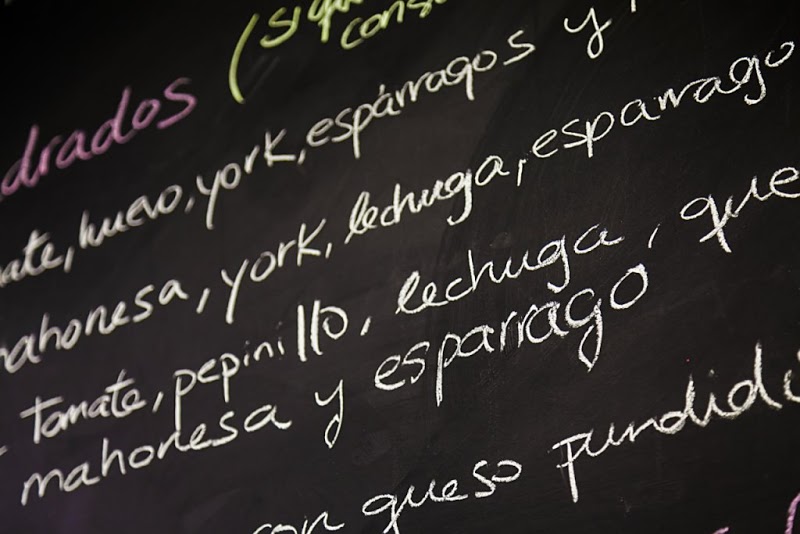 drados (
ate, huevo, york, espárragos y
mahonesa, york, lechuga, esparrago
tomate, pepinillo, lechuga, que
mahonesa y esparrago
con queso